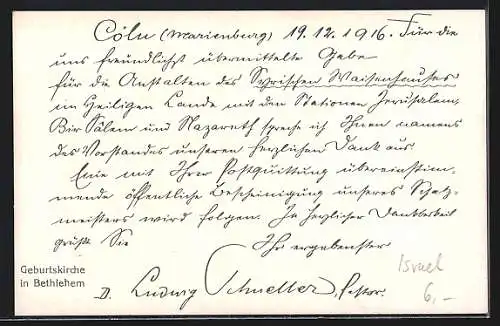 Cöln (Marienburg) 19.12.1916. Für die
uns freundlichst übermittelte Gabe
für die Anstalten des Syrischen Waisenhauses
im Heiligen Lande mit den Stationen Jerusalem,
Bir Salem und Nazareth spreche ich Ihnen namens
des Vorstandes unseren herzlichen Dank aus.
Eine mit Ihrer Postquittung übereinstim-
mende öffentliche Bescheinigung unseres Schatz-
meisters wird folgen. In herzlicher Dankbarkeit
grüßt Sie
Ihr ergebenster
D. Ludwig Schneller, Pastor.
Geburtskirche
in Bethlehem
Israel
6,-